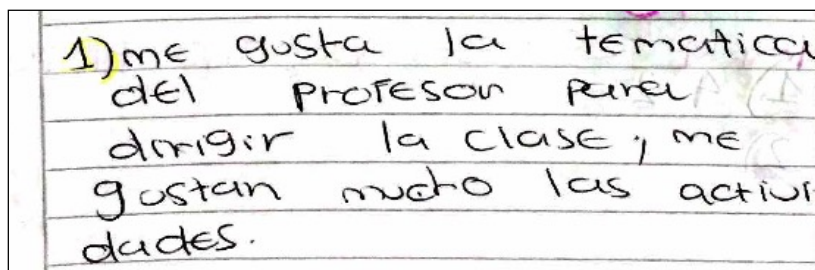 1) me gusta la tematica
del profesor para
dirigir la clase, me
gustan mucho las activi
dades.